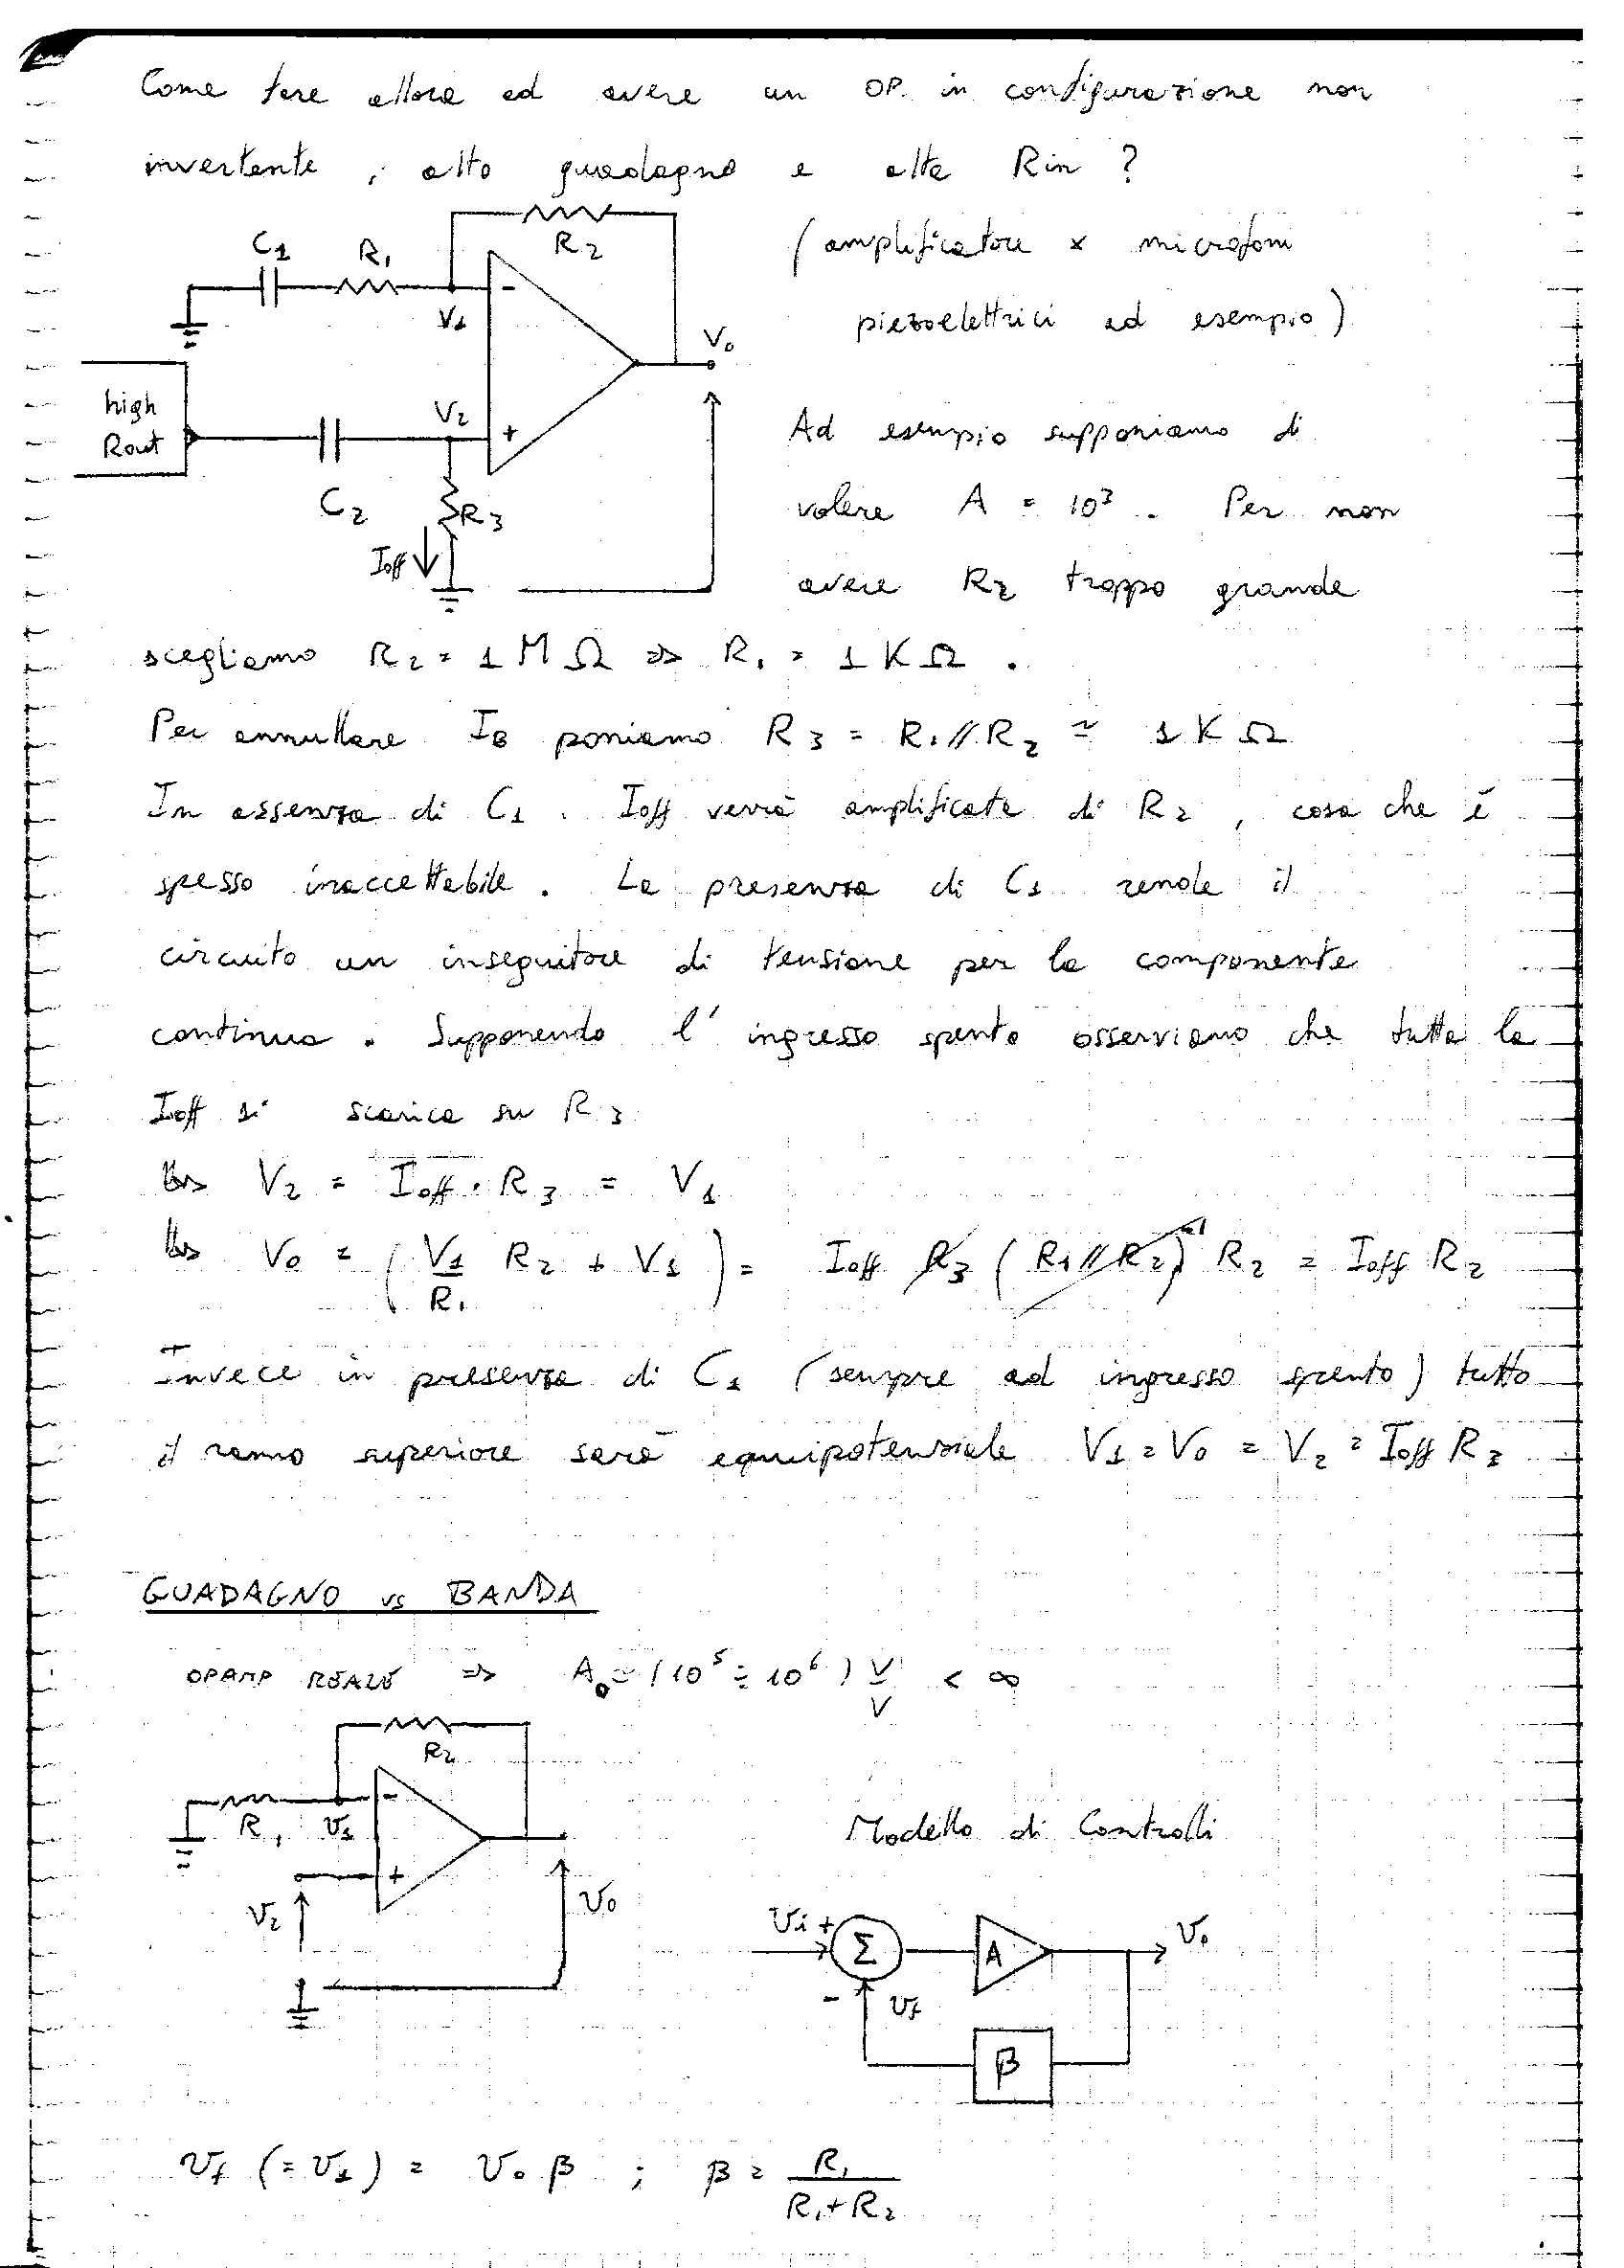 Come fare allora ad avere un OP. in configurazione non
invertente, alto guadagno e alta Rin ?
(amplificatore x microfoni
piezoelettrici ad esempio)
C1 R1 R2
- V1
V0
high
Rout
V2 +
C2 R3
Ioff
Ad esempio supponiamo di
volere A = 10³. Per non
avere R2 troppo grande
scegliamo R2 = 1 MΩ => R1 = 1 KΩ .
Per annullare IB poniamo R3 = R1//R2 ≃ 1 KΩ
In assenza di C1. Ioff verrà amplificata di R2, cosa che è
spesso inaccettabile. La presenza di C1 rende il
circuito un inseguitore di tensione per la componente
continua. Supponendo l' ingresso spento osserviamo che tutta la
Ioff si scarica su R3
↳> V2 = Ioff · R3 = V1
↳> V0 = (V1/R1 R2 + V1) = Ioff R3 (R1//R2)⁻¹ R2 = Ioff R2
Invece in presenza di C1 (sempre ad ingresso spento) tutto
il ramo superiore sarà equipotenziale V1 = V0 = V2 = Ioff R3
GUADAGNO vs BANDA
OPAMP REALE => A0 ≃ (10⁵ ÷ 10⁶) V/V < ∞
R2
R1 v1 -
+
v2
v0
Modello di Controlli
vi + Σ A v0
- vf
β
vf (=v1) = v0 β ; β = R1/(R1+R2)